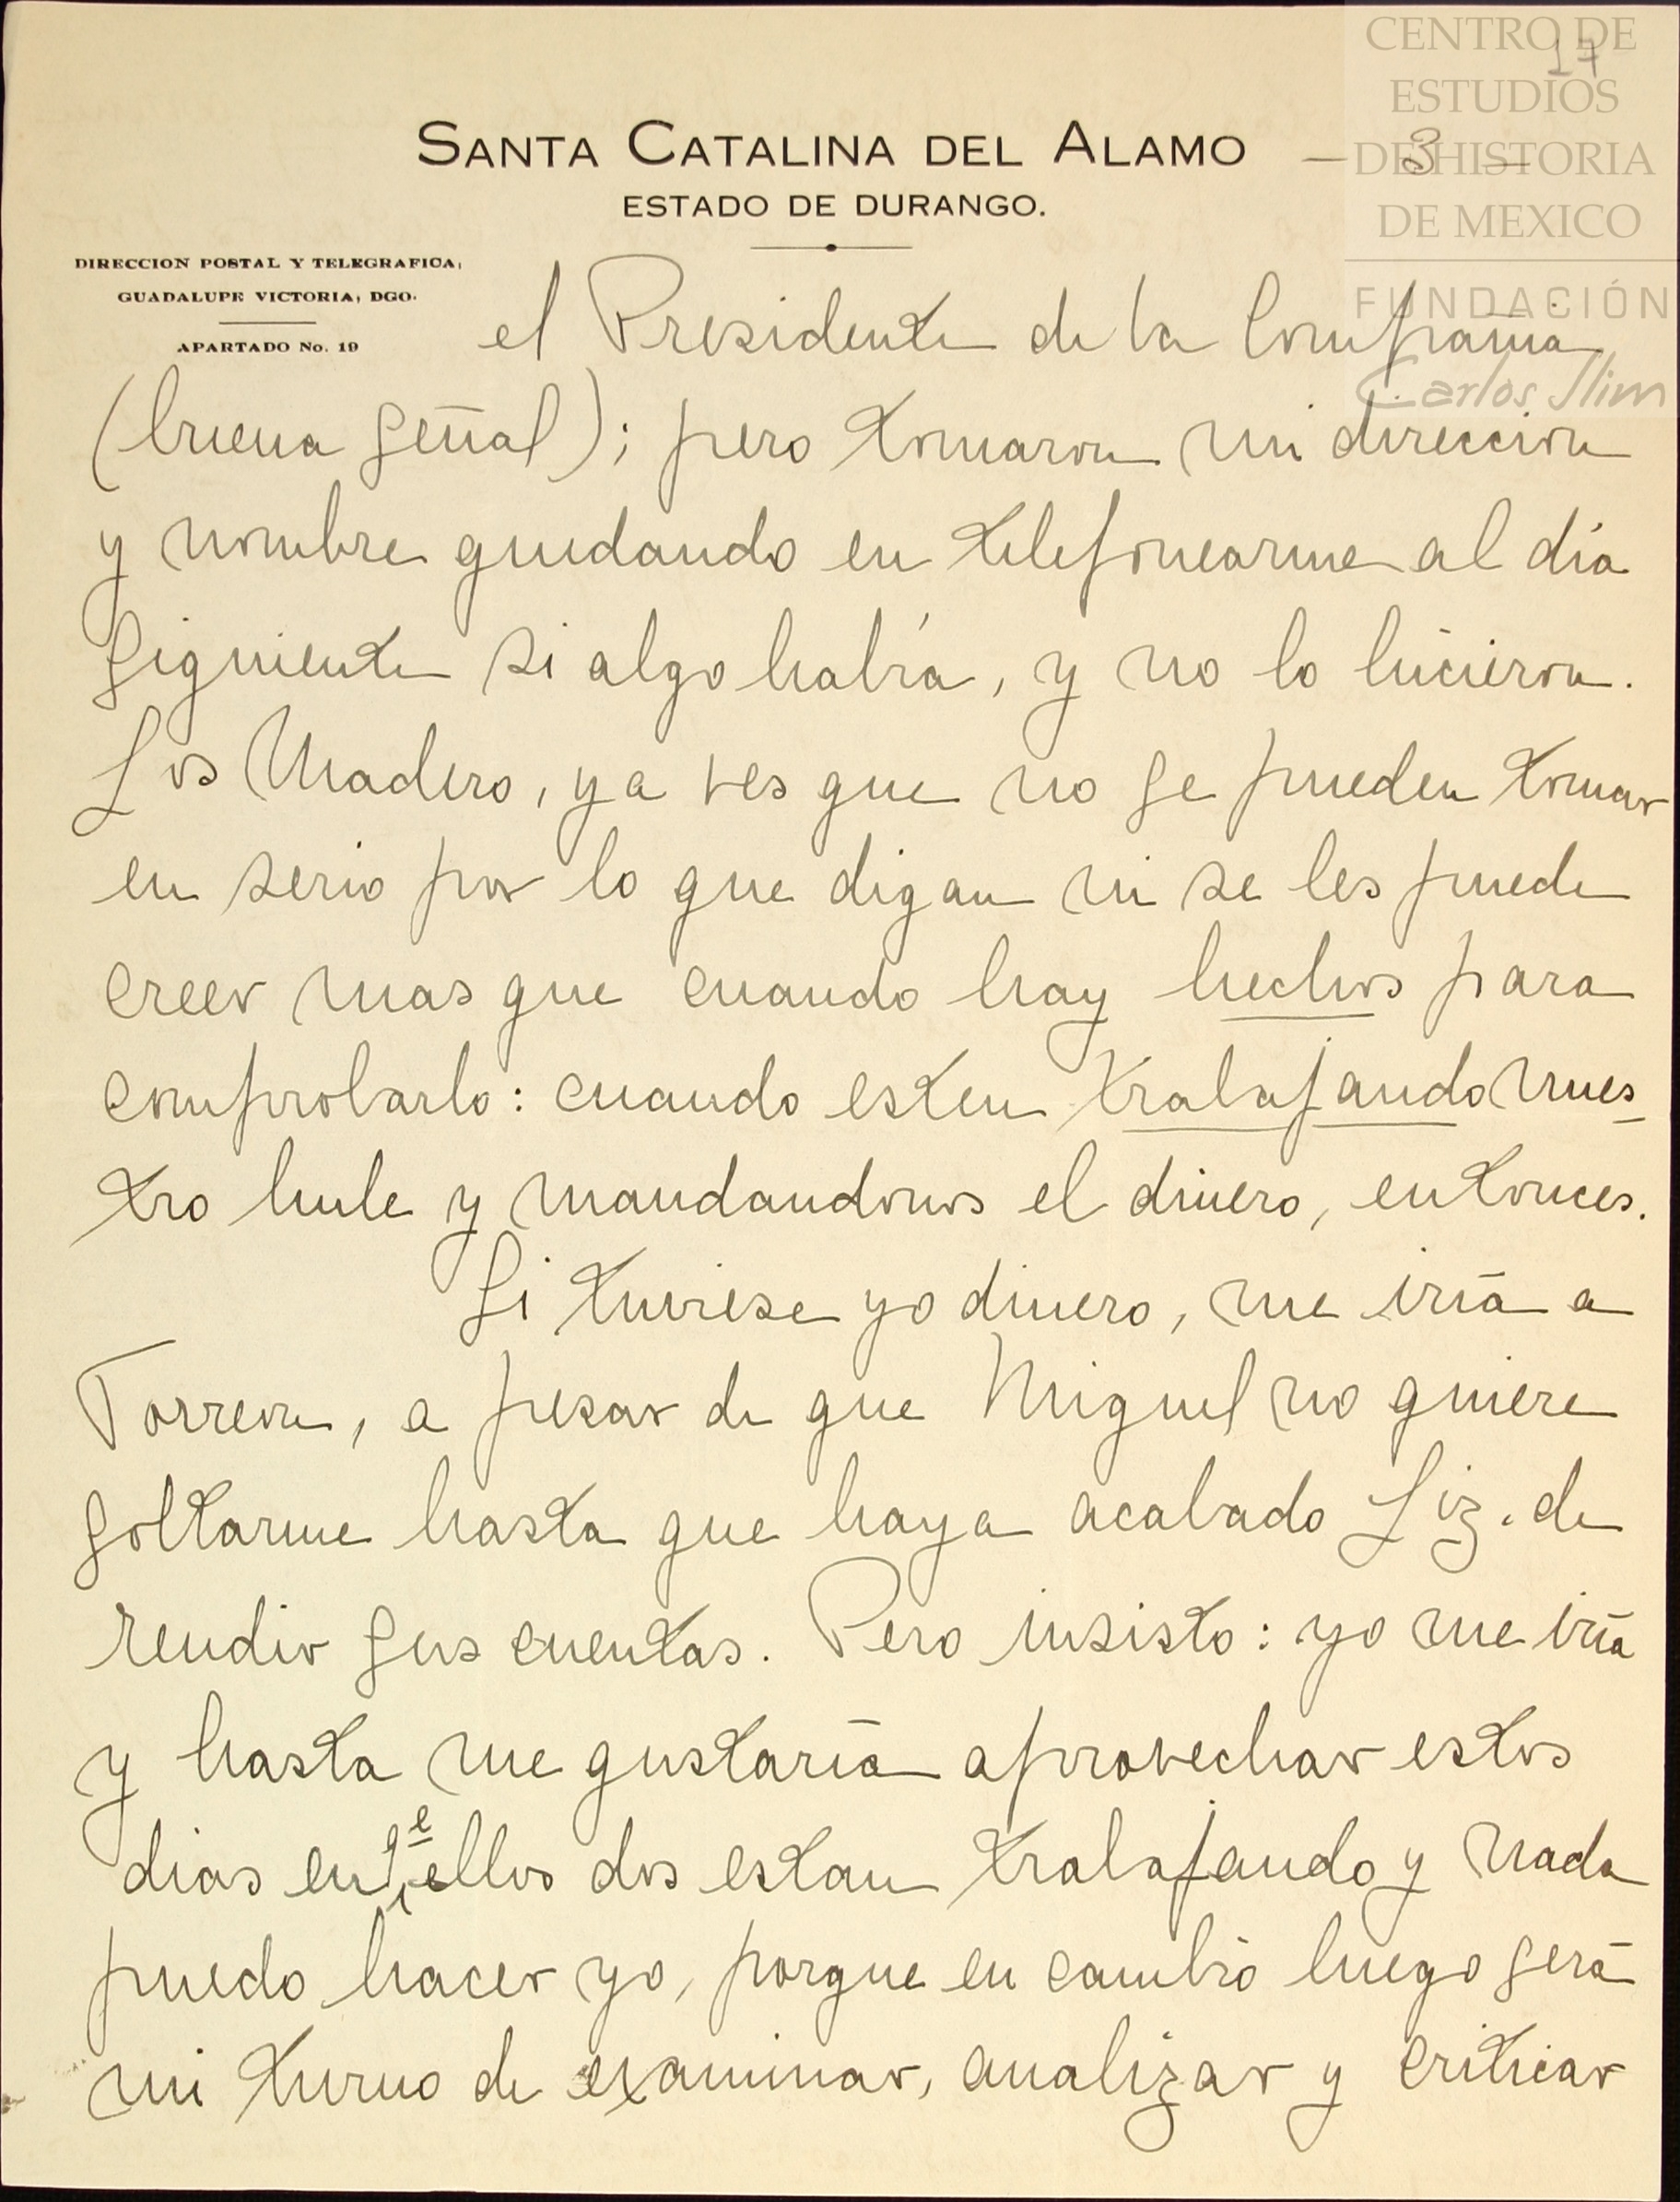 CENTRO DE
17
ESTUDIOS
SANTA CATALINA DEL ALAMO — 3 —
DE HISTORIA
ESTADO DE DURANGO.
DE MEXICO
DIRECCION POSTAL Y TELEGRAFICA,
GUADALUPE VICTORIA, DGO.
FUNDACIÓN
APARTADO No. 19
el Presidente de la Compañia
Carlos Slim
(buena señal); pero tomaron mi direccion
y nombre quedando en telefonearme al día
siguiente si algo había, y no lo hicieron.
Los Madero, ya ves que no se pueden tomar
en serio por lo que digan ni se les puede
creer mas que cuando hay hechos para
comprobarlo: cuando esten trabajando nues-
tro hule y mandandonos el dinero, entonces.
Si tuviese yo dinero, me iría a
Torreon, a pesar de que Miguel no quiere
soltarme hasta que haya acabado Liz. de
rendir sus cuentas. Pero insisto: yo me iría
y hasta me gustaría aprovechar estos
dias en qe ellos dos estan trabajando y nada
puedo hacer yo, porque en cambio luego será
mi turno de examinar, analizar y criticar